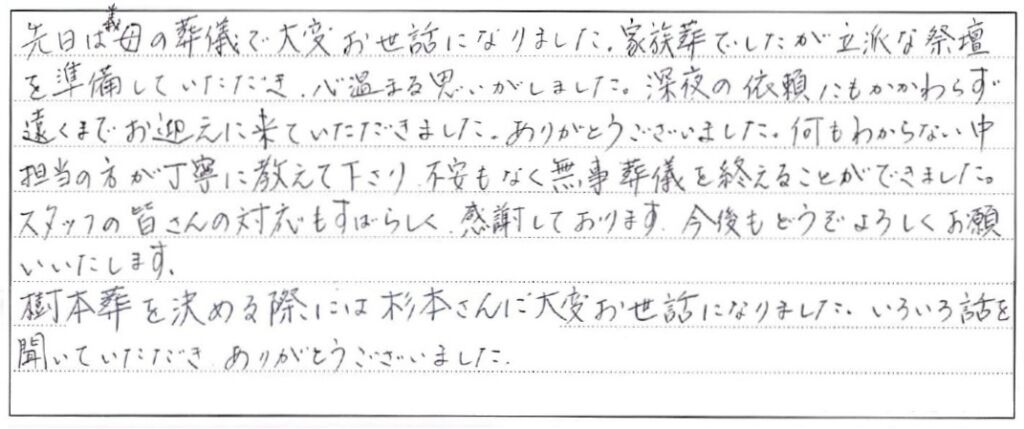 先日は義母の葬儀で大変お世話になりました。家族葬でしたが立派な祭壇
を準備していただき、心温まる思いがしました。深夜の依頼にもかかわらず
遠くまでお迎えに来ていただきました。ありがとうございました。何もわからない中
担当の方が丁寧に教えて下さり、不安もなく無事葬儀を終えることができました。
スタッフの皆さんの対応もすばらしく、感謝しております。今後もどうぞよろしくお願
いいたします。
樹木葬を決める際には杉本さんに大変お世話になりました。いろいろ話を
聞いていただき、ありがとうございました。